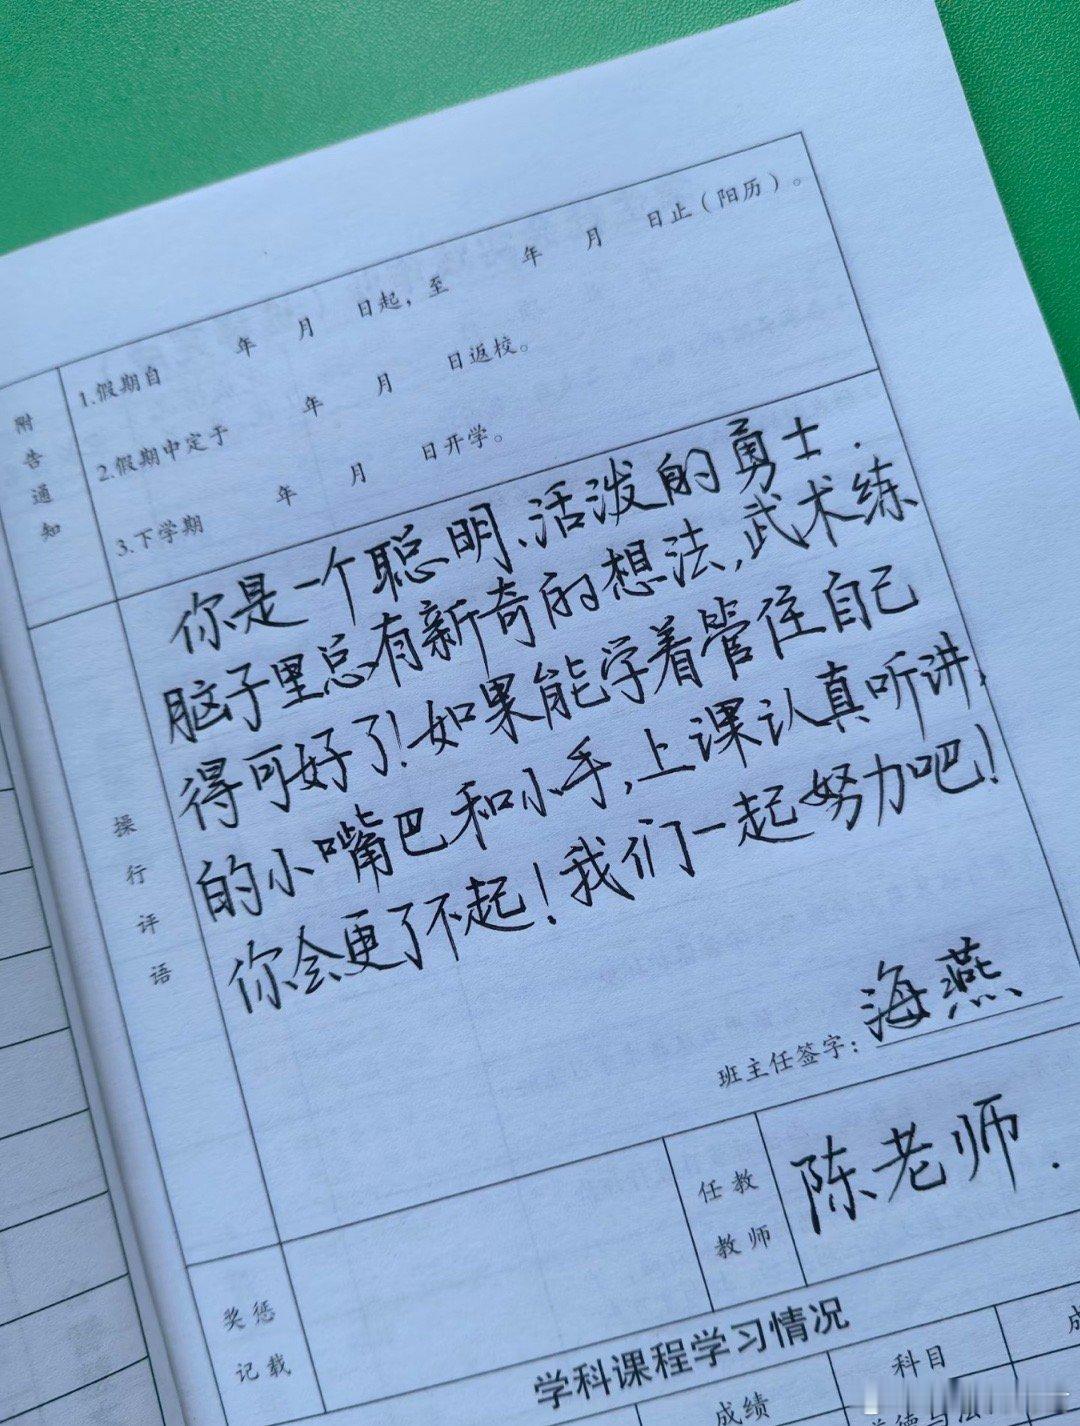 附告通知
1.假期自 年 月 日起，至 年 月 日止（阳历）。
2.假期中定于 年 月 日返校。
3.下学期 年 月 日开学。
操行评语
你是一个聪明、活泼的勇士.
脑子里总有新奇的想法,武术练
得可好了!如果能学着管住自己
的小嘴巴和小手,上课认真听讲,
你会更了不起!我们一起努力吧!
班主任签字：海燕
任教教师
陈老师.
奖惩记载
学科课程学习情况
成绩
科目